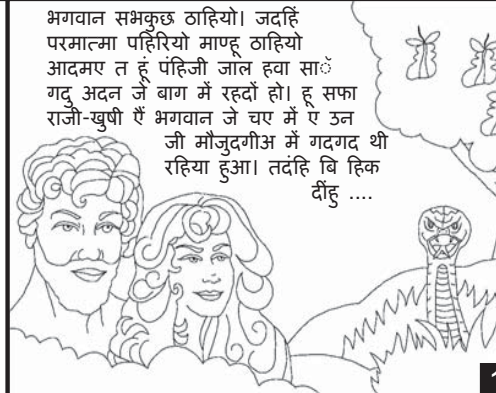 भगवान सभकुछ ठाहियो। जदहिं
परमात्मा पहिरियो माण्हू ठाहियो
आदमए त हूं पंहिजी जाल हवा साॅ
गदु अदन जे बाग में रहदों हो। हू सफा
राजी-खुषी ऐं भगवान जे चए में ए उन
जी मौजुदगीअ में गदगद थी
रहिया हुआ। तदंहि बि हिक
दींहु ....